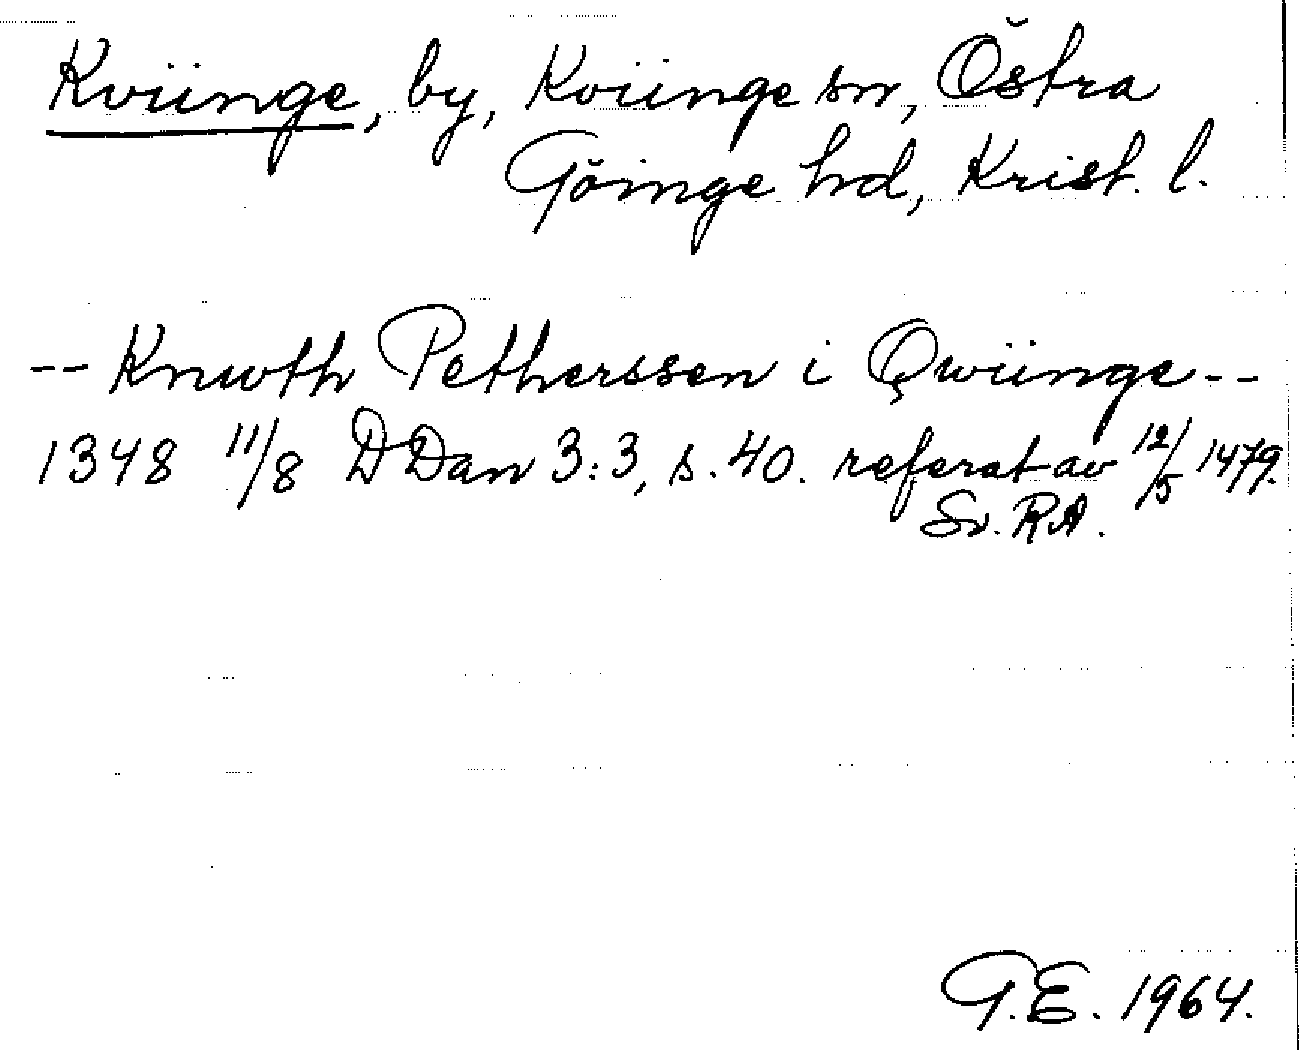 Kviinge, by, Kviinge sn, Östra
Göinge hd, Krist. l.
-- Knwth Petherssen i Qwiinge --
1348 11/8 DDan 3:3, s. 40. referat av 12/5 1479.
Sv. RA.
G.E. 1964.